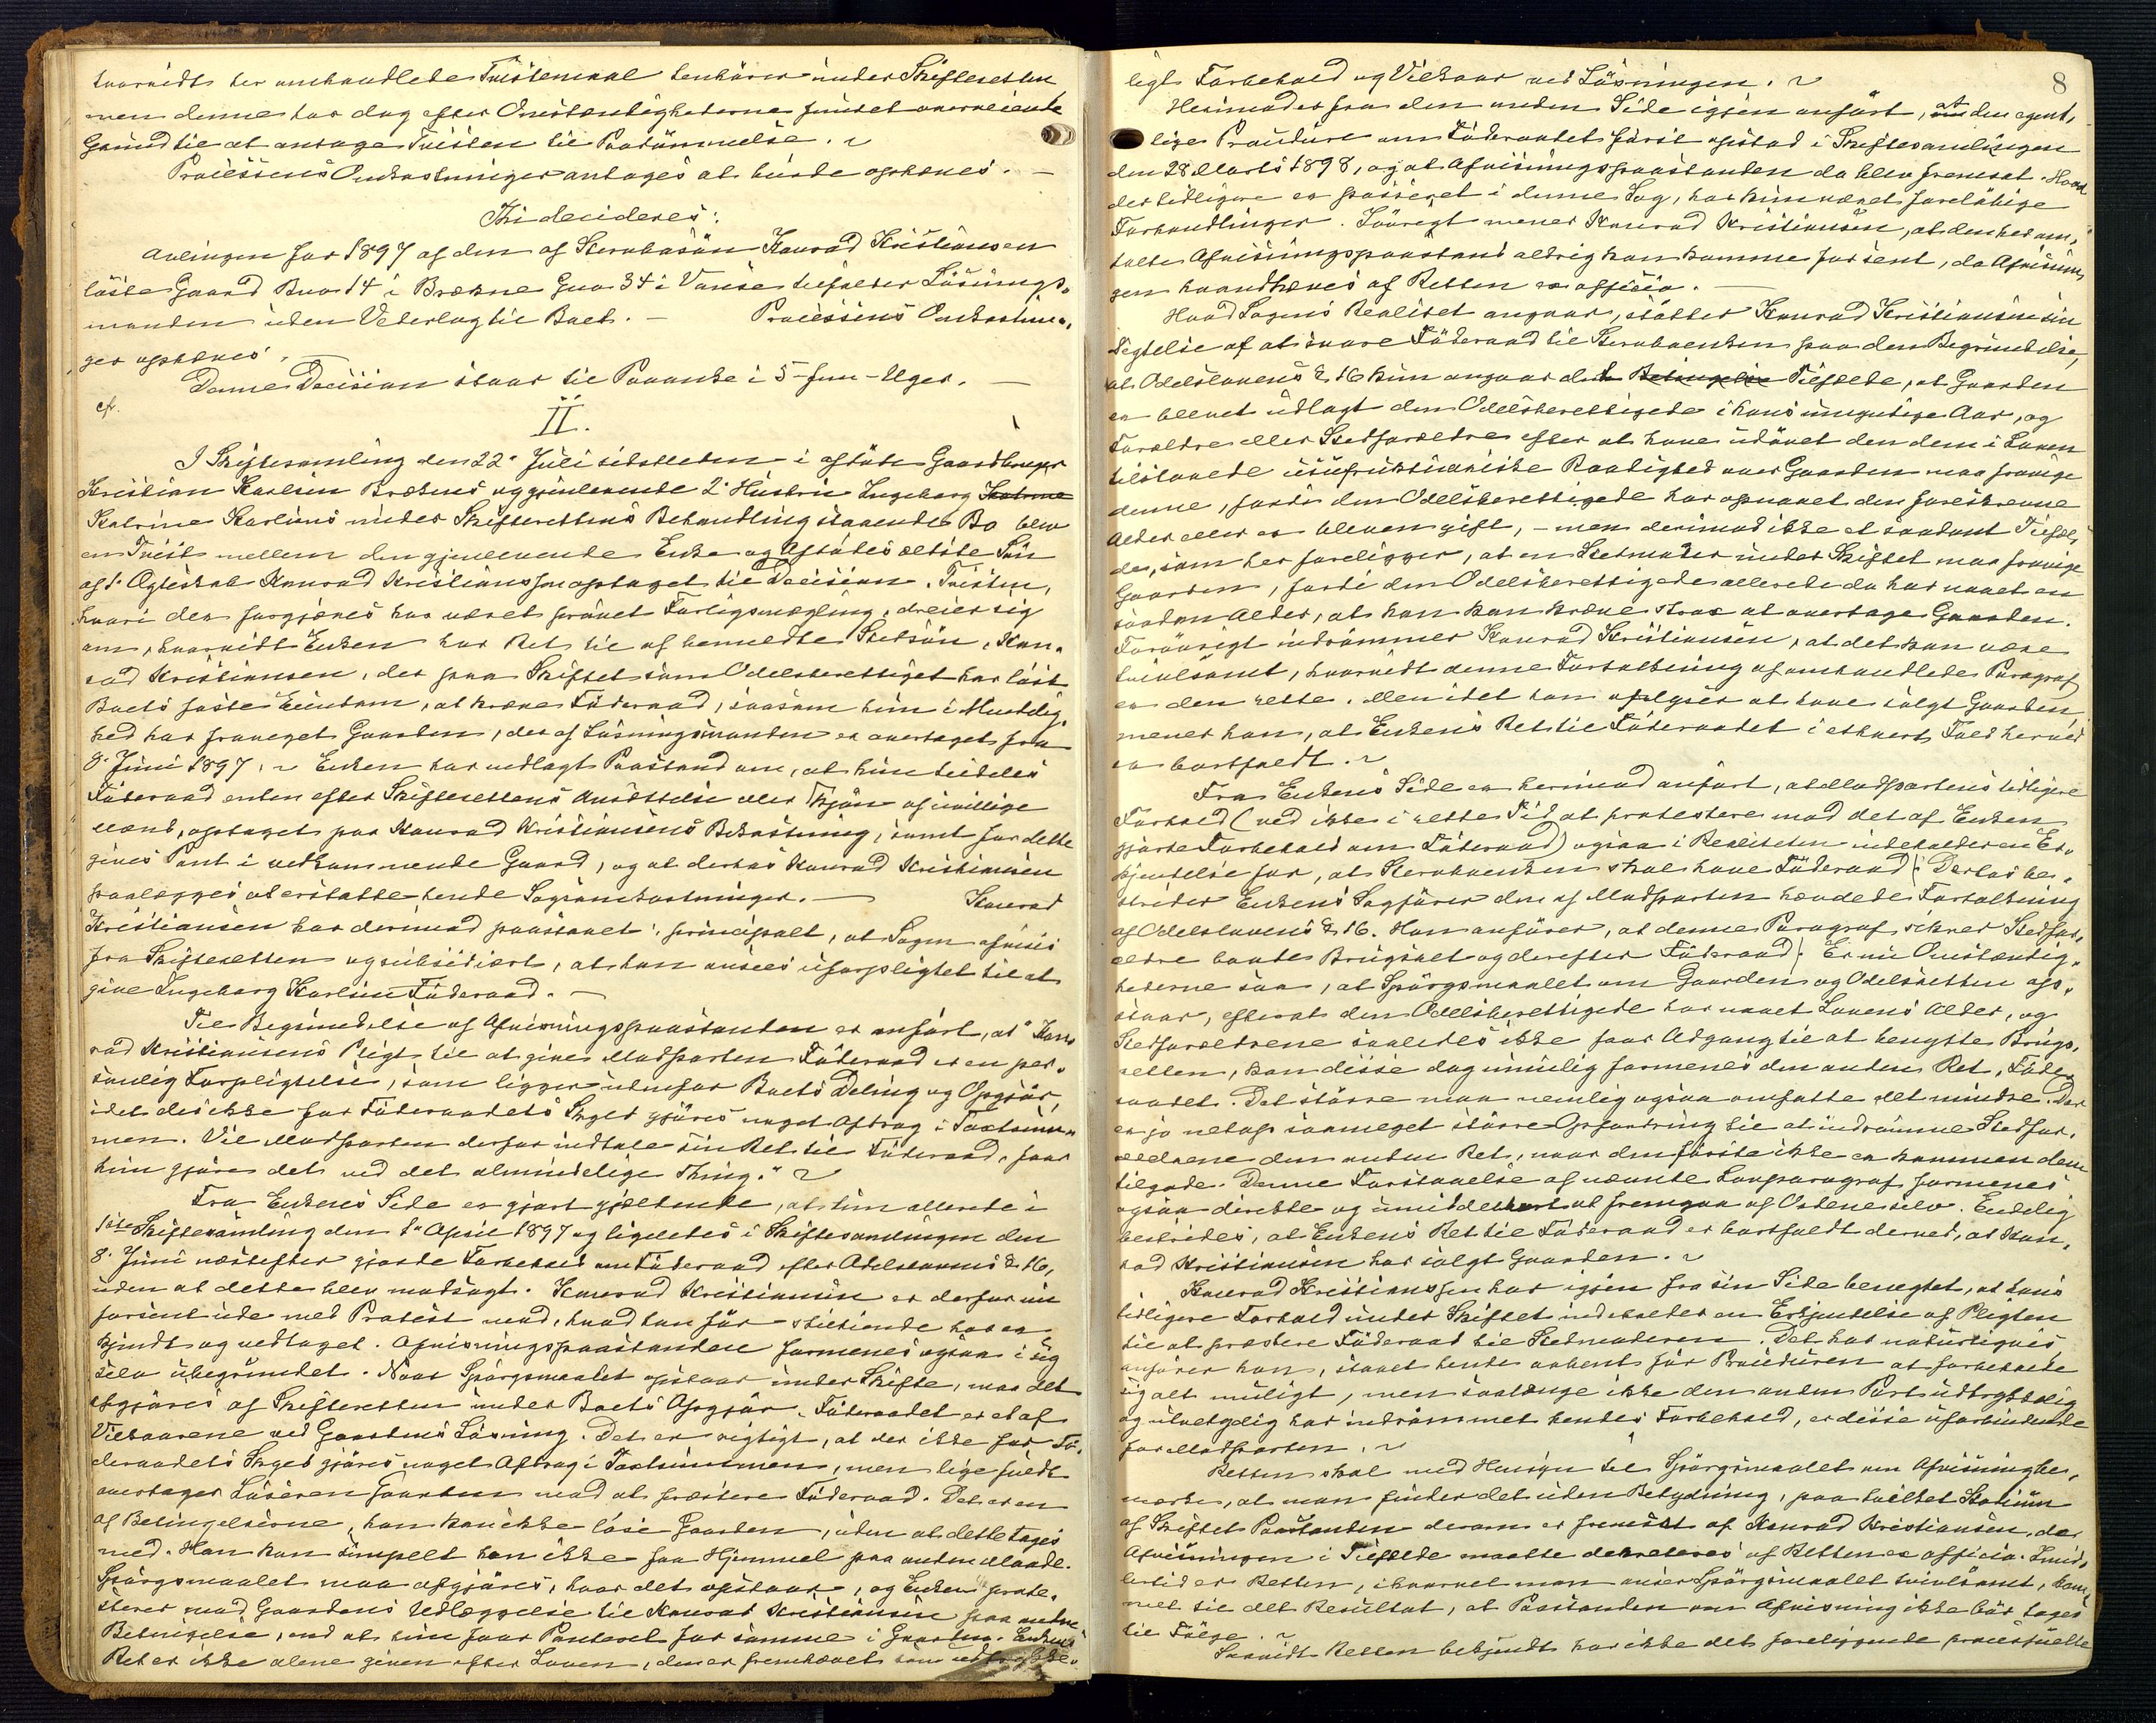 hvorvidt her omhandlede Tvistemaal henhører under Skifteretten
men denne har dog efter Omstændighederne fundet overveiende
Grund til at antage Tvisten til Paadømmelse.
Processens Omkostninger antages at burde ophæves. —
Thi decideres:
Avlingen for 1897 af den af Stervbosøn Konrad Kristiansen
løste Gaard Bno 14 i Brækne Gno 34 i Vanse tilfalder Løsnings-
manden uden Vederlag til Boet. — Processens Omkostnin-
ger ophæves.
Denne Decision staar til Paaanke i 5-fem-Uger. —
cfr.
II.
I Skiftesamling den 22. Juli sidstleden i afdøde Gaardbruger
Kristian Karlsen Bræknes og gjenlevende 2. Hustru Ingeborg
Katrine Karlsens under Skifterettens Behandling staaende Bo blev
en Tvist mellem den gjenlevende Enke og Afdødes ældste Søn
af 1. Ægteskab Konrad Kristianssen optaget til Decision. Tvisten,
hvori der forgjæves har været prøvet Forligsmægling, dreier sig
om, hvorvidt Enken har Ret til af bemeldte Stedsøn, Kon-
rad Kristiansen, der paa Skiftet som Odelsberettiget har løst
Boets faste Eiendom, at kræve Føderaad, saasom hun i Mindelig-
hed har fraveget Gaarden, der af Løsningsmanden er overtaget fra
8. Juni 1897. Enken har nedlagt Paastand om, at hun tildeles
Føderaad enten efter Skifterettens Ansættelse eller Skjøn af uvillige
Mænd, optaget paa Konrad Kristiansens Bekostning, samt for dette
gives Pant i vedkommende Gaard, og at derhos Konrad Kristiansen
paalægges at erstatte hende Sagsomkostninger. — Konrad
Kristiansen har derimod paastaaet: principalt, at Sagen afvises
fra Skifteretten og subsidiært, at han ansees uforpligtet til at
give Ingeborg Karlsen Føderaad. —
Til Begrundelse af Afvisningspaastanden er anført, at "Kon-
rad Kristiansens Pligt til at give Modparten Føderaad er en per-
sonlig Forpligtelse, som ligger udenfor Boets Deling og Opgjør,
idet der ikke for Føderaadets Skyld gjøres noget Afdrag i Taxtsum-
men. Vil Modparten derfor indtale sin Ret til Føderaad, faar
hun gjøre det ved det almindelige Thing."
Fra Enkens Side er gjort gjældende, at hun allerede i
1ste Skiftesamling den 1. April 1897 og ligeledes i Skiftesamlingen den
8. Juni næstefter gjorde Forbehold om Føderaad efter Odelslovens § 16,
uden at dette blev modsagt. Konrad Kristiansen er derfor nu
forsent ude med Protest mod, hvad han før stiltiende har er-
kjendt og vedtaget. Afvisningspaastanden formenes ogsaa i sig
selv ubegrundet. Naar Spørgsmaalet opstaar under Skifte, maa det
afgjøres af Skifteretten under Boets Opgjør. Føderaadet er et af
Vilkaarene ved Gaardens Løsning. Det er rigtigt, at der ikke for Fø-
deraadets Skyld gjøres noget Afdrag i Taxtsummen, men lige fuldt
overtager Løseren Gaarden mod at præstere Føderaad. Det er en
af Betingelserne, han kan ikke løse Gaarden, uden at dette tages
med. Han kan simpelt hen ikke faa Hjemmel paa anden Maade.
Spørgsmaalet maa afgjøres, hvor det opstaar, og Enken prote-
sterer mod Gaardens Udlæggelse til Konrad Kristiansen paa anden
Betingelse, end at hun faar Panteret for samme i Gaarden. Enkens
Ret er ikke alene given efter Loven, den er fremhævet som udtrykke-
8
ligt Forbehold og Vilkaar ved Løsningen.
Herimod er fra den anden Side igjen anført, at den egent-
lige Procedure om Føderaadet først opstod i Skiftesamlingen
den 28 Marts 1898, og at Afvisningspaastanden da blev fremsat. Hvad
der tidligere er passeret i denne Sag, har kun været foreløbige
Forhandlinger. Iøvrigt mener Konrad Kristiansen, at den her om-
talte Afvisningspaastand aldrig kan komme for sent, da Afvisnin-
gen haandhæves af Retten ex officio. —
Hvad Sagens Realitet angaar, støtter Konrad Kristiansen sin
Nægtelse af at svare Føderaad til Stervboenken paa den Begrundelse,
at Odelslovens § 16 kun angaar det Tilfælde, at Gaarden
er blevet udlagt den Odelsberettigede i hans umyndige Aar, og
Forældre eller Stedforældre efter at have udøvet den dem i Loven
tilstaaede usufruktuariske Raadighed over Gaarden maa fravige
denne, fordi den Odelsberettigede har opnaaet den foreskrevne
Alder eller er bleven gift, – men derimod ikke et saadant Tilfæl-
de, som her foreligger, at en Stedmoder under Skiftet maa fravige
Gaarden, fordi den Odelsberettigede allerede da har naaet en
saadan Alder, at han kan kræve strax at overtage Gaarden.
Forøvrigt indrømmer Konrad Kristiansen, at det kan være
tvivlsomt, hvorvidt denne Fortolkning af omhandlede Paragraf
er den rette. Men idet han oplyser at have solgt Gaarden,
mener han, at Enkens Ret til Føderaadet i ethvert Fald herved
er bortfaldt.
Fra Enkens Side er herimod anført, at Modpartens tidligere
Forhold (ved ikke i rette Tid at protestere mod det af Enken
gjorte Forbehold om Føderaad) ogsaa i Realiteten indeholder en Er-
kjendelse for, at Stervboenken skal have Føderaad. Derhos be-
strider Enkens Sagfører den af Modparten hævdede Fortolkning
af Odelslovens § 16. Han anfører, at denne Paragraf sikrer Stedfor-
ældre baade Brugsret og derefter Føderaad. Er nu Omstændig-
hederne saa, at Spørgsmaalet om Gaarden og Odelsretten op-
staar, efterat den Odelsberettigede har naaet Lovens Alder, og
Stedforældrene saaledes ikke faar Adgang til at benytte Brugs-
retten, kan disse dog umulig formenes den anden Ret, Føde-
raadet. Det større maa nemlig ogsaa omfatte det mindre. Der
er jo netop saameget større Opfordring til at indrømme Stedfor-
ældrene den anden Ret, naar den første ikke er kommen dem
tilgode. Denne Forstaaelse af nævnte Lovparagraf formenes
ogsaa direkte og umiddelbart at fremgaa af Ordene selv. Endelig
bestrides, at Enkens Ret til Føderaad er bortfaldt derved, at Kon-
rad Kristiansen har solgt Gaarden.
Konrad Kristianssen har igjen fra sin Side benegtet, at hans
tidligere Forhold under Skiftet indeholder en Erkjendelse af Pligten
til at præstere Føderaad til Stedmoderen. Det har naturligvis,
anfører han, staaet hende aabent før Proceduren at forbeholde
sig alt muligt, men saalænge ikke den anden Part udtrykkelig
og utvetydig har indrømmet hendes Forbehold, er disse uforbindende
for Modparten.
Retten skal med Hensyn til Spørgsmaalet om Afvisning be-
mærke, at man finder det uden Betydning, paa hvilket Stadium
af Skiftet Paastanden derom er fremsat af Konrad Kristiansen, da
Afvisningen i Tilfælde maatte dekreteres af Retten ex officio. Imid-
lertid er Retten, ihvorvel man anser Spørgsmaalet tvivlsomt, kom-
met til det Resultat, at Paastanden om Afvisning ikke bør tages
til Følge.
Saavidt Retten bekjendt har ikke det foreliggende processuelle